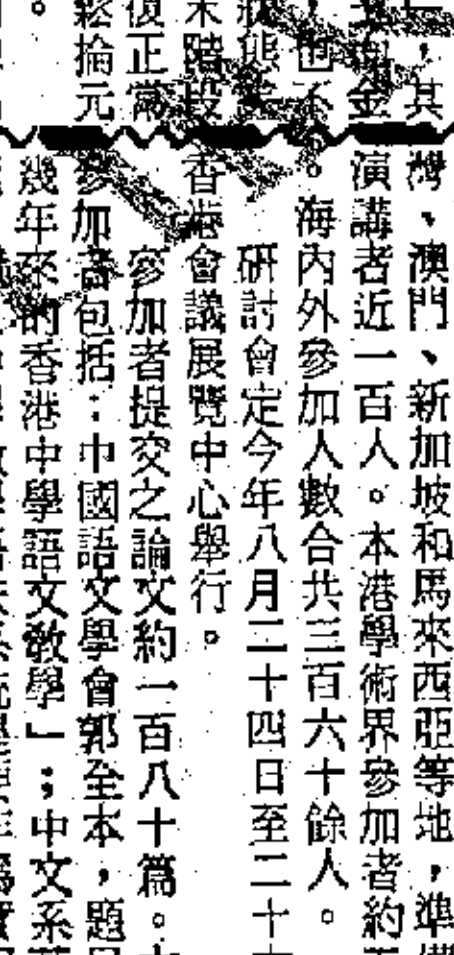 ，其
金
，也不
階段
復正常
掄元
。
灣、澳門、新加坡和馬來西亞等地，準
演講者近一百人。本港學術界參加者約
。海內外參加人數合共三百六十餘人。
研討會定今年八月二十四日至二十
香港會議展覽中心舉行。
參加者提交之論文約一百八十篇。
參加者包括：中國語文學會郭全本，題
幾年來的香港中學語文教學」；中文系